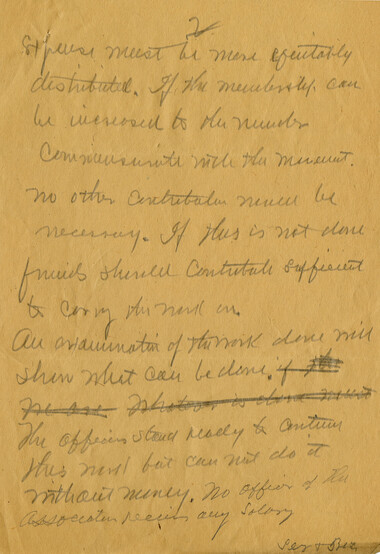 2
Expense must be more equitably
distributed. If the membership can
be increased to the number
Commensurate with the movement.
no other Contribution would be
necessary. If this is not done
friends should Contribute sufficient
to carry the work on.
An examination of the work done will
show what can be done. if the
we are. Whatever is done must
The officers stand ready to continue
this work but can not do it
without money. No officer of the
Association receives any Salary